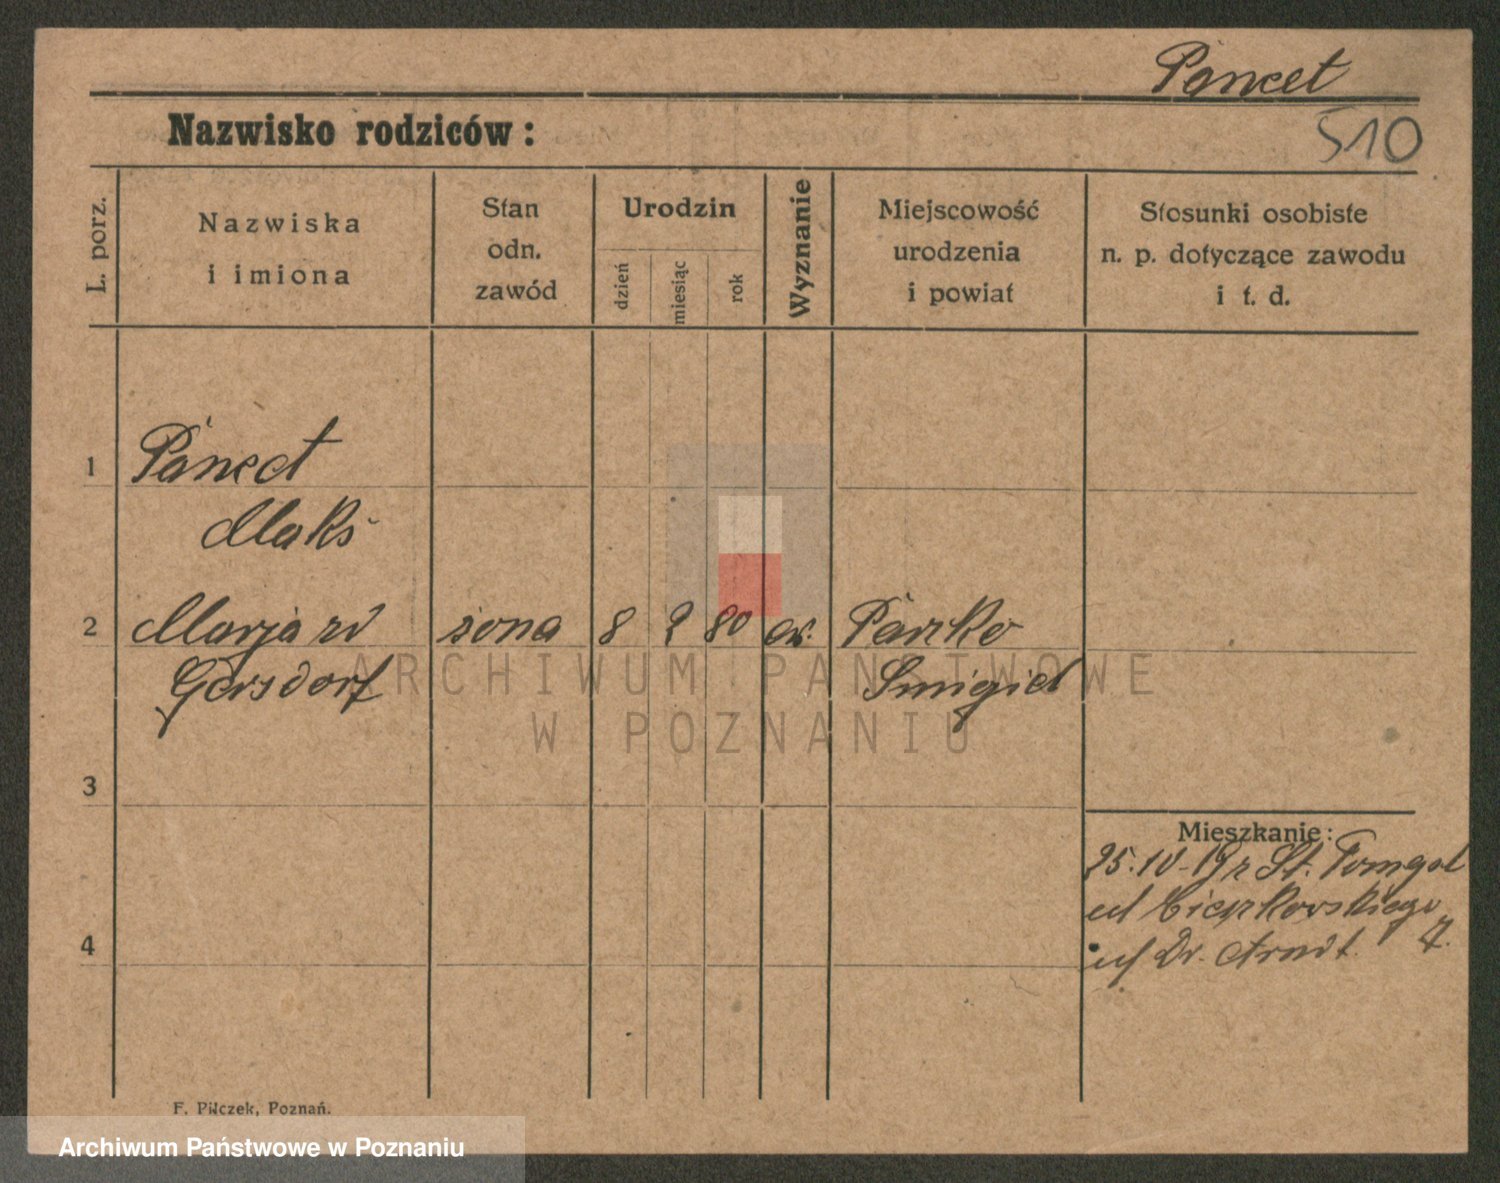 Pancet
510
Nazwisko rodziców:
L. porz.
Nazwiska
i imiona
Stan
odn.
zawód
Urodzin
dzień
miesiąc
rok
Wyznanie
Miejscowość
urodzenia
i powiat
Stosunki osobiste
n. p. dotyczące zawodu
i t. d.
1
Pancet
Maks
2
Marja zd żona 8 2 80 ew. Parzko
Gersdorf Smigiel
ARCHIWUM PAŃSTWOWE
W POZNANIU
3
Mieszkanie:
25.IV-19 r St.
ul Cieszkowskiego 7.
4
Dr. Arndt.
F. Pilczek, Poznań.
Archiwum Państwowe w Poznaniu